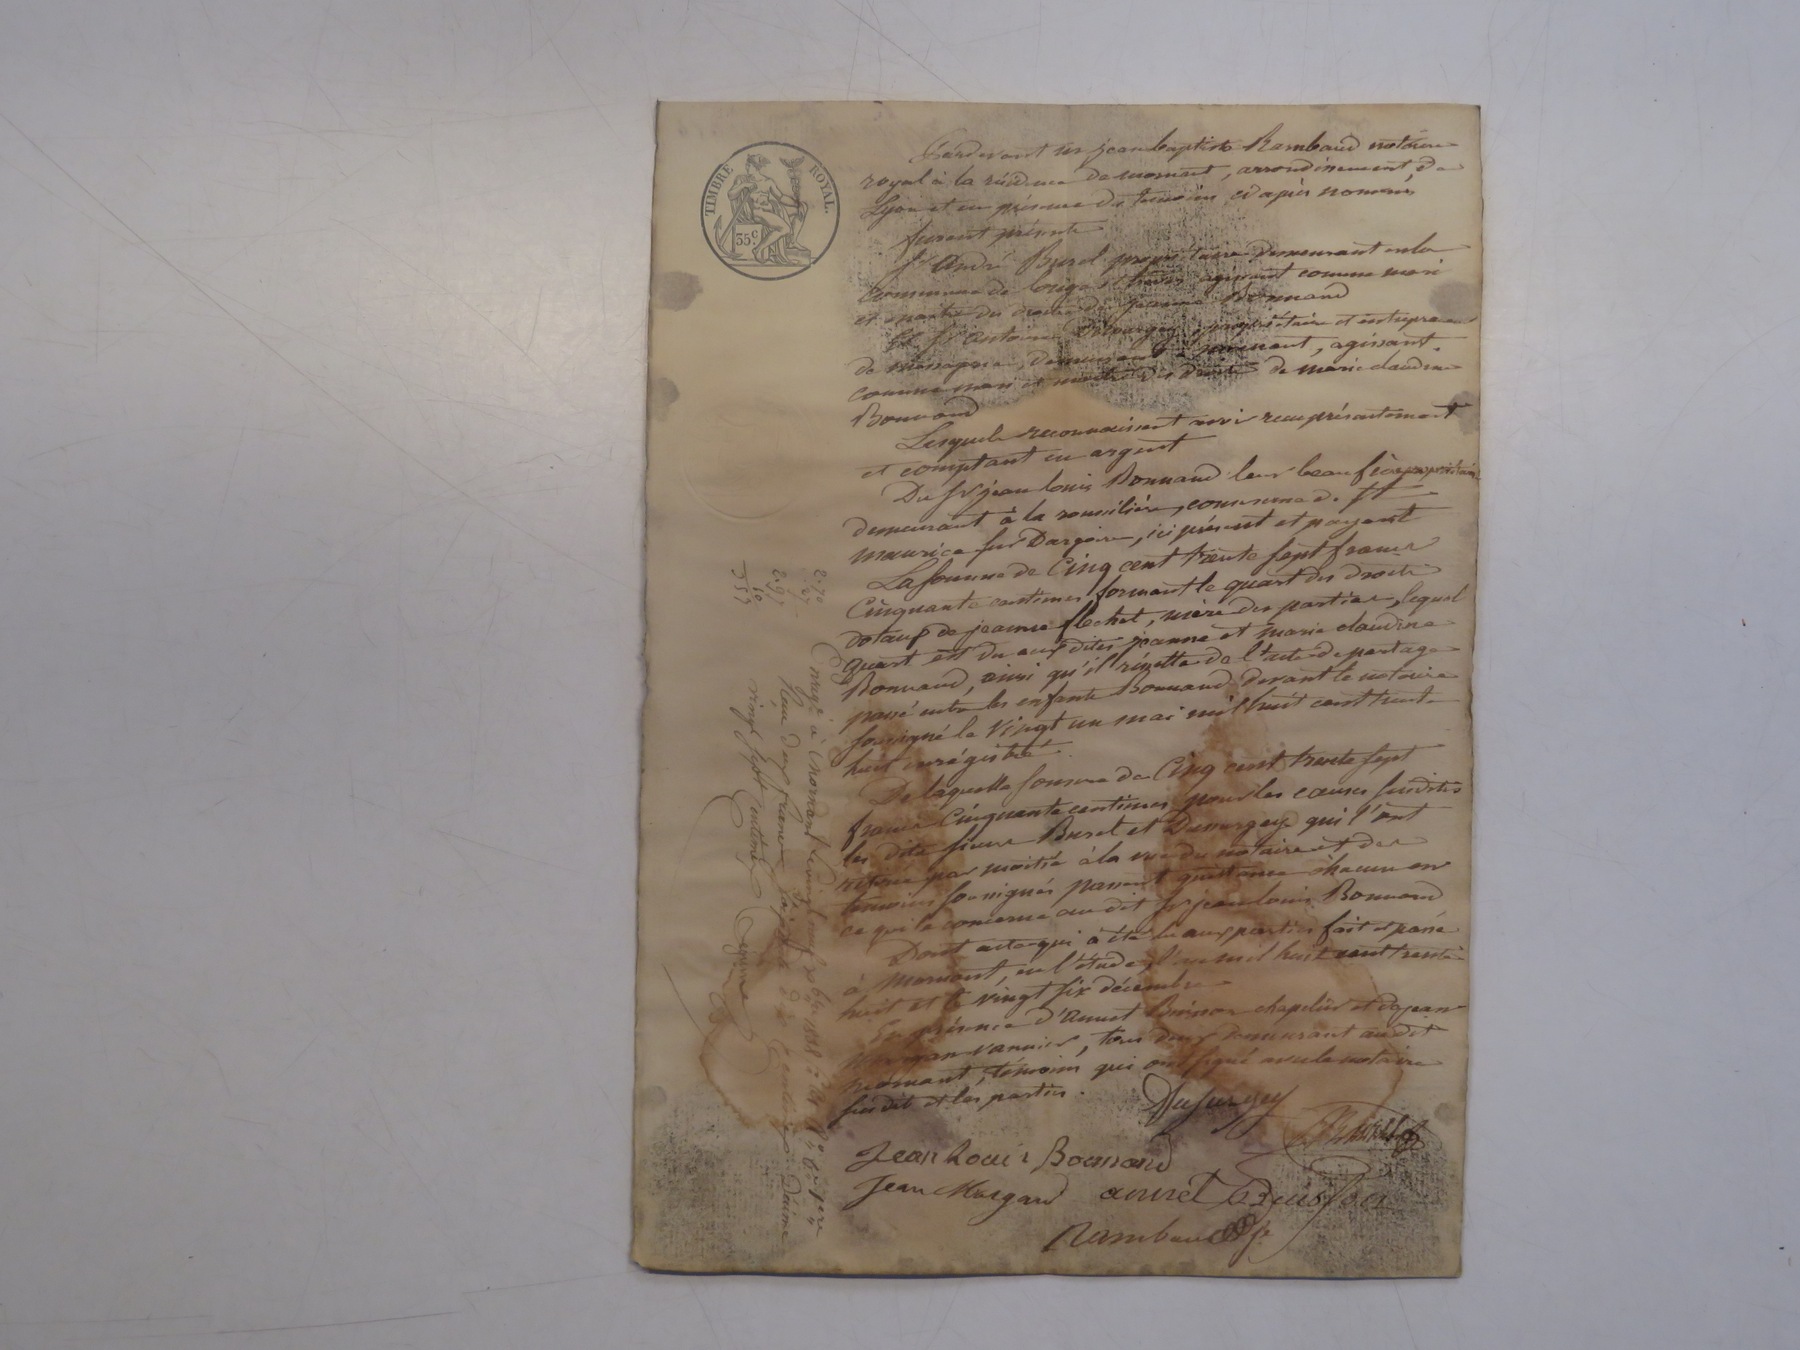 TIMBRE ROYAL.
35 c
Pardevant Me jean baptiste Rambaud notaire
royal à la résidence de mornant, arrondissement de
Lyon et en présence des témoins cidaprès nommés
furent présents
Sr André Burel propriétaire demeurant en la
commune de agissant comme mari
et maitre des droits de jeanne Bonnand
Et Sr antoine propriétaire et entrepreneur
de messagerie, demeurant à mornant, agissant
comme mari et maitre des droits de marie claudine
Bonnand
Lesquels reconnaissent avoir reçu présentement
et comptant en argent
Du Sr jean louis Bonnand leur beau frère propriétaire
demeurant à la ronsilière, commune de St
maurice sur Dargoire, ici présent et payant
La somme de Cinq cent trente sept francs
Cinquante centimes formant le quart des droits
dotaux de jeanne flechet, mère des parties, lequel
quart est du aux dites jeanne et marie claudine
Bonnand, ainsi qu'il résulte de l'acte de partage
passé entre les enfants Bonnand devant le notaire
soussigné le vingt un mai mil huit cent trente
huit enrégistré.
De laquelle somme de Cinq cent trente sept
francs Cinquante centimes pour les causes susdites
les dits sieurs Burel et qui l'ont
retirée par moitié à la vue du notaire et des
temoins soussignés passent quittance chacun en
ce qui le concerne au dit Sr jean louis Bonnand
Dont acte qui à été lu aux parties fait et passé
à Mornant, en l'étude, l'an mil huit cent trente
huit et le vingt six décembre
En présence d'Annet Buisson chapelier et de jean
vannier, tous deux demeurant au dit
mornant, témoins qui ont signé avec le notaire
susdit et les parties.
Burel
Jean Louis Bonnand
Jean Margard annet Buisson
Rambaud
2.70
27
2.97
10
Enregé à Mornant le vingt sept Xbre 1838
Reçu deux francs
vingt sept centimes